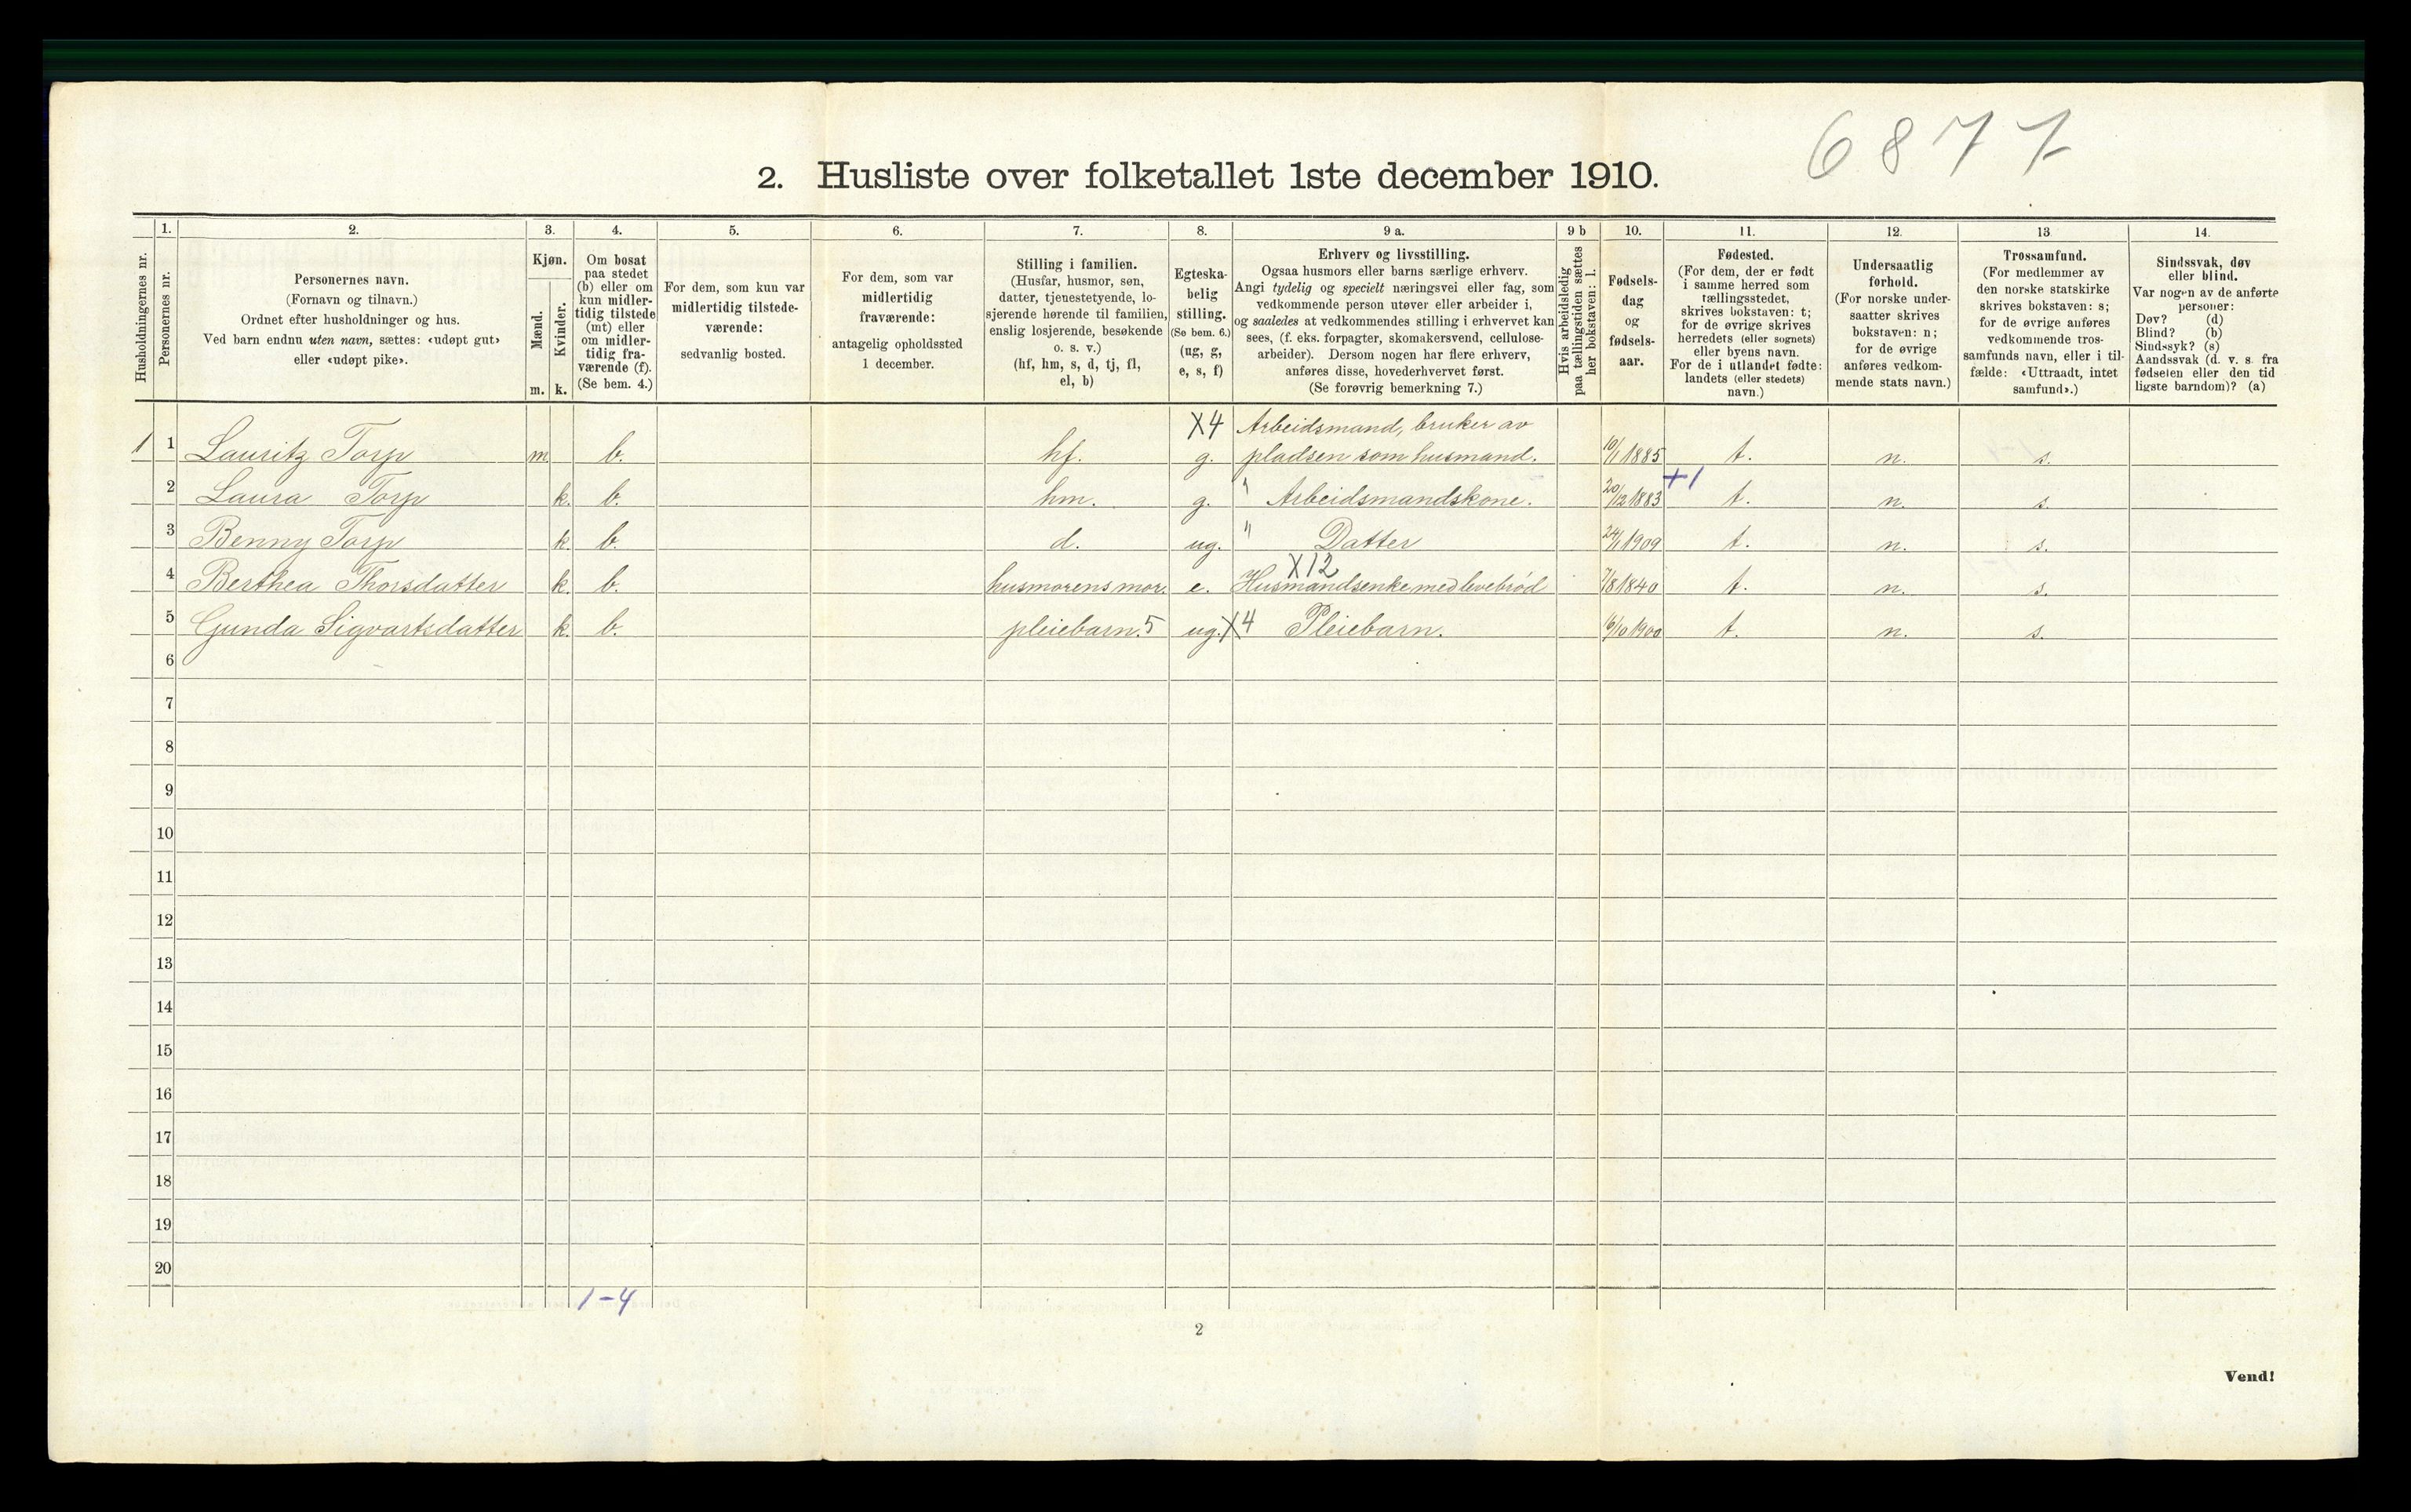 6877
2. Husliste over folketallet 1ste december 1910.
Husholdningernes nr.
1.
Personernes nr.
2.
Personernes navn.
(Fornavn og tilnavn.)
Ordnet efter husholdninger og hus.
Ved barn endnu uten navn, sættes: «udøpt gut»
eller «udøpt pike».
3.
Kjøn.
Mænd.
m.
Kvinder.
k.
4.
Om bosat
paa stedet
(b) eller om
kun midler-
tidig tilstede
(mt) eller
om midler-
tidig fra-
værende (f).
(Se bem. 4.)
5.
For dem, som kun var
midlertidig tilstede-
værende:
sedvanlig bosted.
6.
For dem, som var
midlertidig
fraværende:
antagelig opholdssted
1 december.
7.
Stilling i familien.
(Husfar, husmor, søn,
datter, tjenestetyende, lo-
sjerende hørende til familien,
enslig losjerende, besøkende
o. s. v.)
(hf, hm, s, d, tj, fl,
el, b)
8.
Egteska-
belig
stilling.
(Se bem. 6.)
(ug, g,
e, s, f)
9 a.
Erhverv og livsstilling.
Ogsaa husmors eller barns særlige erhverv.
Angi tydelig og specielt næringsvei eller fag, som
vedkommende person utøver eller arbeider i,
og saaledes at vedkommendes stilling i erhvervet kan
sees, (f. eks. forpagter, skomakersvend, cellulose-
arbeider). Dersom nogen har flere erhverv,
anføres disse, hovederhvervet først.
(Se forøvrig bemerkning 7.)
9 b
Hvis arbeidsledig
paa tællingstiden sættes
her bokstaven: l.
10.
Fødsels-
dag
og
fødsels-
aar.
11.
Fødested.
(For dem, der er født
i samme herred som
tællingsstedet,
skrives bokstaven: t;
for de øvrige skrives
herredets (eller sognets)
eller byens navn.
For de i utlandet fødte:
landets (eller stedets)
navn.)
12.
Undersaatlig
forhold.
(For norske under-
saatter skrives
bokstaven: n;
for de øvrige
anføres vedkom-
mende stats navn.)
13
Trossamfund.
(For medlemmer av
den norske statskirke
skrives bokstaven: s;
for de øvrige anføres
vedkommende tros-
samfunds navn, eller i til-
fælde: «Uttraadt, intet
samfund».)
14.
Sindssvak, døv
eller blind.
Var nogen av de anførte
personer:
Døv? (d)
Blind? (b)
Sindssyk? (s)
Aandssvak (d. v. s. fra
fødselen eller den tid
ligste barndom)? (a)
X4 Arbeidsmand, bruker av
1 1 Lauritz Torp m. b. hf. g. pladsen som husmand. 10/1 1885 t. n. s.
+1
2 Laura Torp k. b. hm. g. " Arbeidsmandskone. 20/12 1883 t. n. s.
3 Benny Torp k. b. d. ug. " Datter 24/1 1909 t. n. s.
X12
4 Berthea Thorsdatter k. b. husmorens mor. e. Husmandsenke med levebrød 7/8 1840 t. n. s.
5 Gunda Sigvartsdatter k. b. pleiebarn. 5 ug. X4 Pleiebarn. 16/10 1900 t. n. s.
6
7
8
9
10
11
12
13
14
15
16
17
18
19
20
1-4
2
Vend!